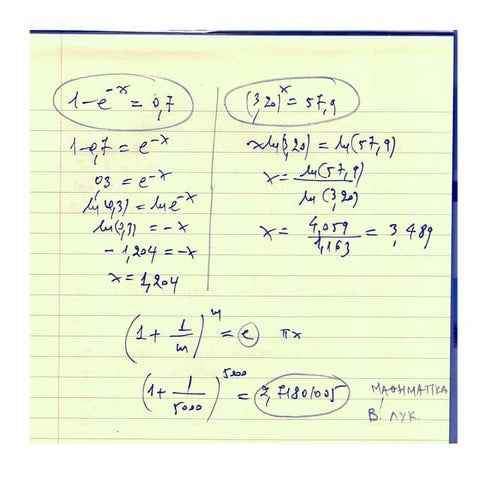 1-e^-x = 0,7
1-0,7 = e^-x
03 = e^-x
ln(0,3) = ln e^-x
ln(0,3) = -x
-1,204 = -x
x = 1,204
(3,20)^x = 57,9
x ln(3,20) = ln(57,9)
x = ln(57,9) / ln(3,20)
x = 4,059 / 1,163 = 3,489
(1 + 1/m)^m = e πx
(1 + 1/5000)^5000 = 2,7181005
ΜΑΘΗΜΑΤΙΚΑ
Β. ΛΥΚ.